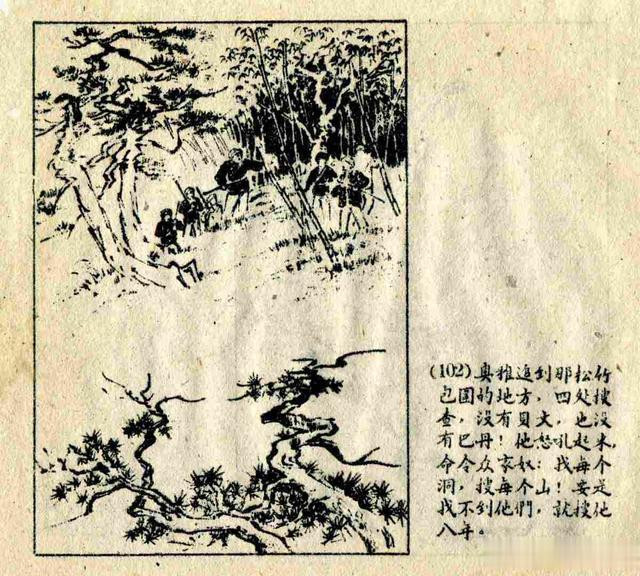 (102)奥雅追到那松竹
包围的地方，四处搜
查，没有贝大，也没
有巴丹！他怒吼起来，
命令众家奴：找每个
洞，搜每个山！要是
找不到他們，就搜他
八年。